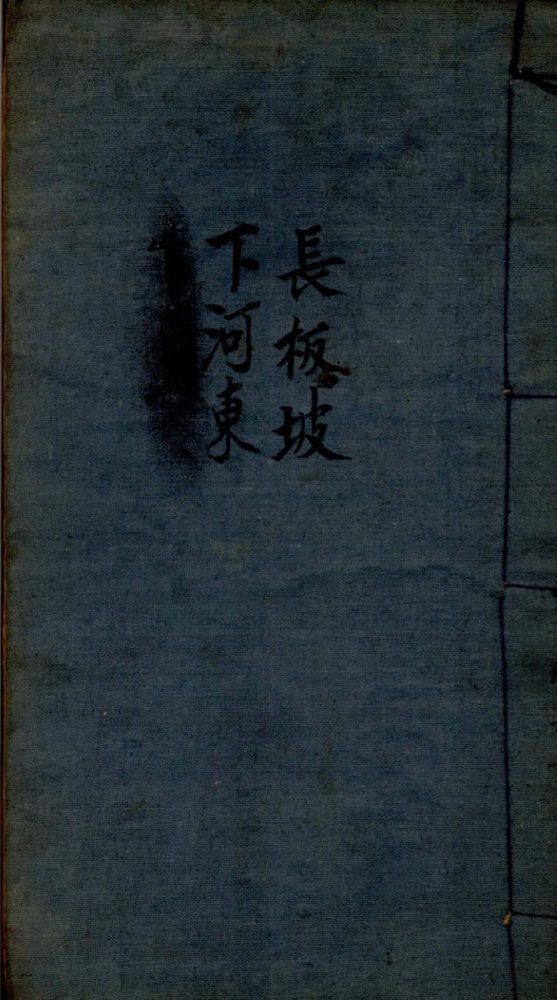 長板坡
下河東